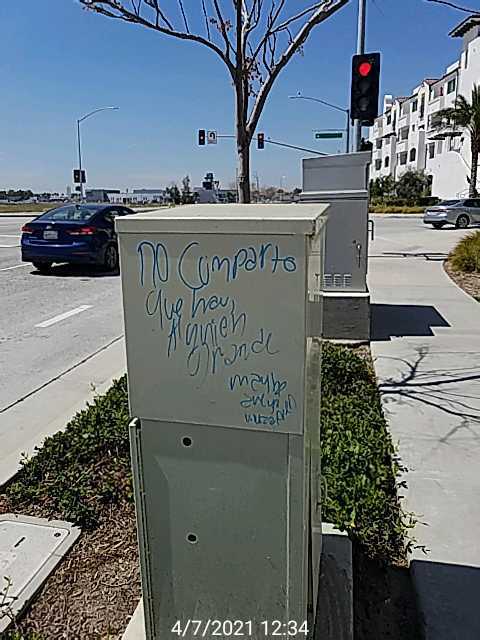 No Comparto
Que hay
Alguien
grande
maybe
4/7/2021 12:34